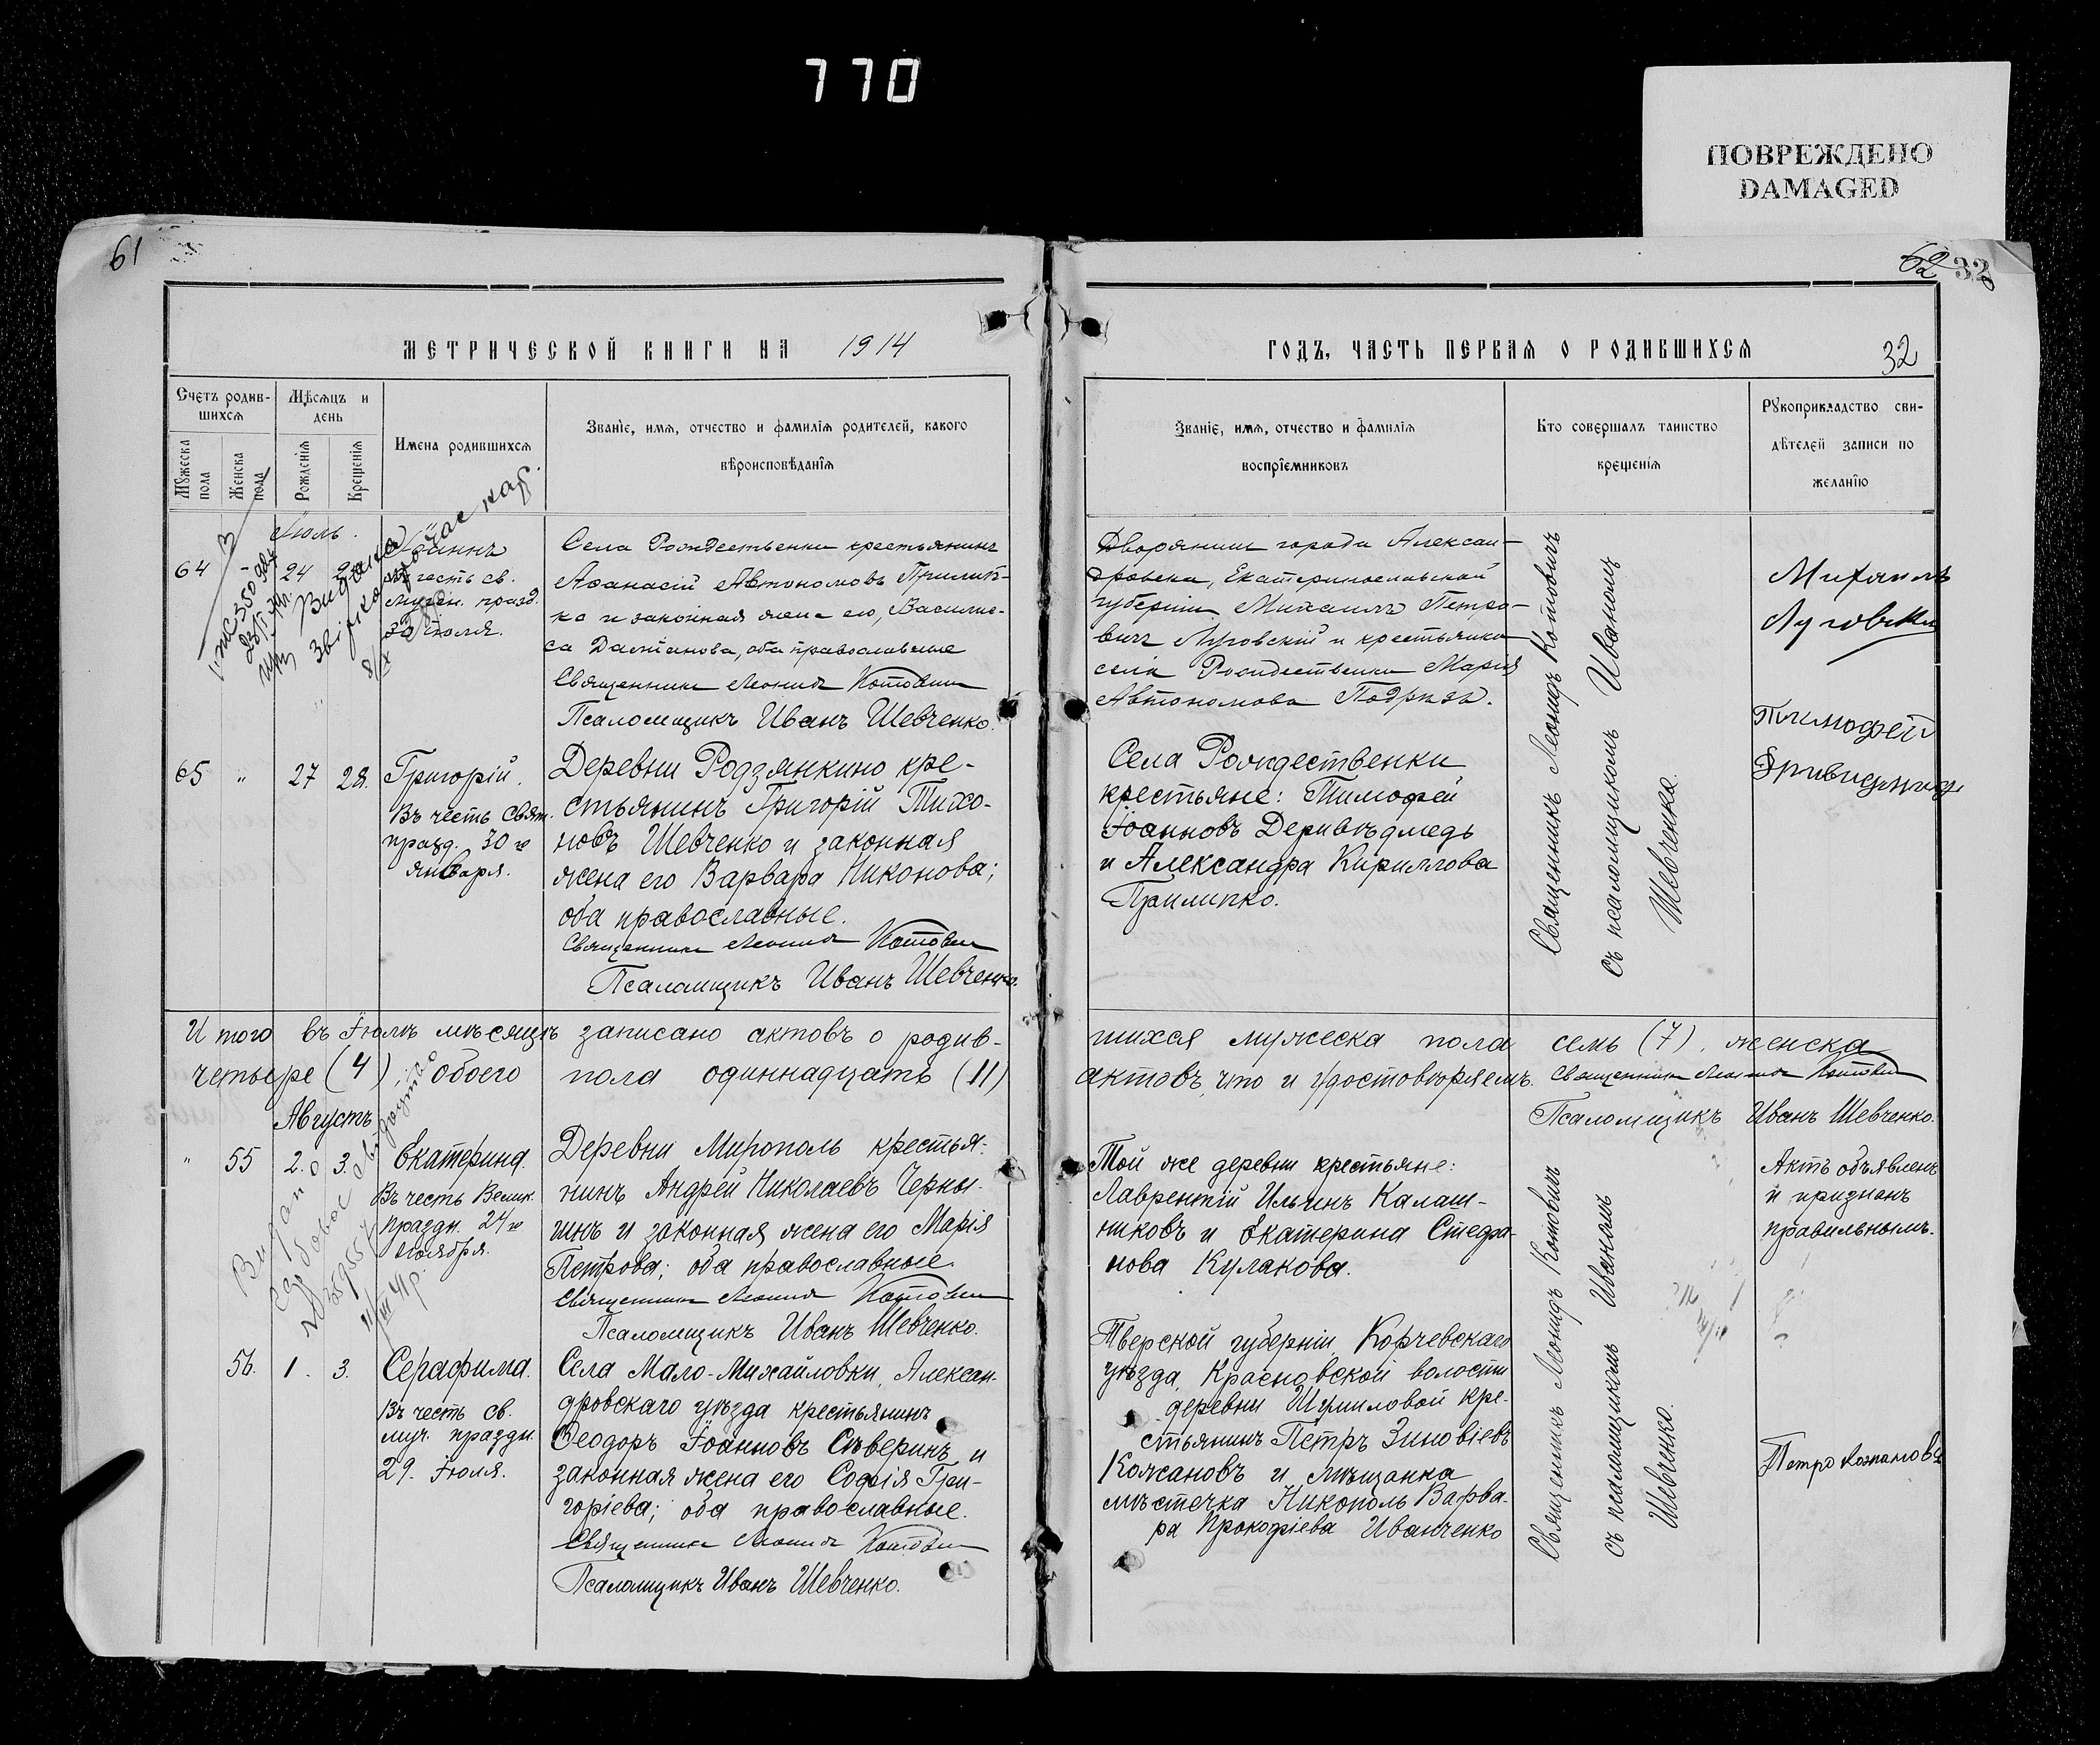 770
ПОВРЕЖДЕНО
DAMAGED
61
МЕТРИЧЕСКОЙ КНИГИ НА 1914
Счетъ родив-
шихся
Мѣсяцъ и
день
Мужеска
пола
Женска
пола
Рожденія
Крещенія
Имена родившихся
Званіе, имя, отчество и фамилія родителей, какого
вѣроисповѣданія
Іюль.
64
24
Іоаннъ
въ честь св.
мучен. празд.
30 Іюля.
Видано
Села Рождественки крестьянинъ
Афанасій Автономовъ Прилип-
ко и законная жена его, Василис-
са Даміанова, оба православные
Священникъ Леонидъ Котовичъ
Псаломщикъ Иванъ Шевченко.
65 " 27 28.
Григорій.
Въ честь Свят.
празд. 30го
января.
Деревни Родзянкино кре-
стьянинъ Григорій Тихо-
новъ Шевченко и законная
жена его Варвара Никонова;
оба православные.
Священникъ Леонидъ Котовичъ
Псаломщикъ Иванъ Шевченко.
Итого въ Іюлѣ мѣсяцѣ записано актовъ о родив-
четыре (4); обоего пола одиннадцать (11)
Августъ
" 55 2. 3.
Екатерина.
Въ честь Велик.
праздн. 24го
Ноября.
Видано
Деревни Мирополь крестья-
нинъ Андрей Николаевъ Черны-
шъ и законная жена его Марія
Петрова; оба православные.
Священникъ Леонидъ Котовичъ
Псаломщикъ Иванъ Шевченко.
56. 1. 3.
Серафима.
Въ честь св.
муч. праздн.
29. Іюля.
Села Мало-Михайловки, Алексан-
дровскаго уѣзда крестьянинъ
Ѳеодоръ Іоанновъ Сѣверинъ и
законная жена его Софія Гри-
горіева; оба православные.
Священникъ Леонидъ Котовичъ
Псаломщикъ Иванъ Шевченко.
62 32
ГОДЪ, ЧАСТЬ ПЕРВАЯ О РОДИВШИХСЯ
32
Званіе, имя, отчество и фамилія
воспріемниковъ
Кто совершалъ таинство
крещенія
Рукоприкладство сви-
дѣтелей записи по
желанію
Дворянинъ города Алексан-
дровска, Екатеринославской
губерніи Михаилъ Петро-
вичъ Луговскій и крестьянка
села Рождественки Марія
Автономова Подрѣза.
Михаилъ
Села Рождественки
крестьяне: Тимофей
Іоанновъ Деривѣдмедь
и Александра Кириллова
Прилипко.
Тимофей
Священникъ Леонидъ Котовичъ
съ псаломщикомъ Иваномъ
Шевченко.
шихся мужеска пола семь (7), женска
актовъ, что и удостовѣряемъ. Священникъ Леонидъ Котовичъ
Псаломщикъ Иванъ Шевченко.
Той же деревни крестьяне:
Лаврентій Ильинъ Калаш-
никовъ и Екатерина Стефа-
нова Кулакова.
Актъ объявленъ
и признанъ
правильнымъ.
Тверской губерніи, Корчевскаго
уѣзда, Красновской волости
деревни Шумиловой кре-
стьянинъ Петръ Зиновіевъ
Кожановъ и мѣщанка
мѣстечка Никополь Варва-
ра Прокофіева Иванченко
Священникъ Леонидъ Котовичъ
съ псаломщикомъ Иваномъ
Шевченко.
Петро Кожановъ